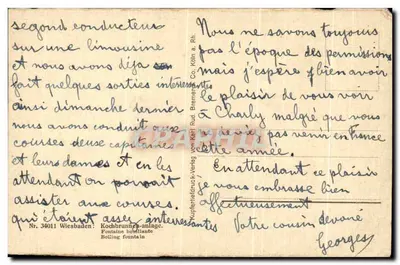 segond conducteur
sur une limousine
et nous avons déja
fait quelques sorties interessantes
ainsi dimanche dernier
nous avons conduit aux
courses deux capitaines
et leurs dames et en les
attendant on pouvait
assister aux courses.
qui étaient assez interessantes
Nr. 34011 Wiesbaden: Kochbrunnen-anlage.
Fontaine bouillante
Boiling fountain
Kupfertiefdruck-Verlag von Rud. Bremer & Co, Köln a. Rh.
Nous ne savons toujours
pas l'époque des permissions
mais j'espère bien avoir
le plaisir de vous voir
à Charly malgré que vous
deviez pas venir en France
cette année.
En attendant ce plaisir
je vous embrasse bien
affectueusement
Votre cousin dévoué
Georges